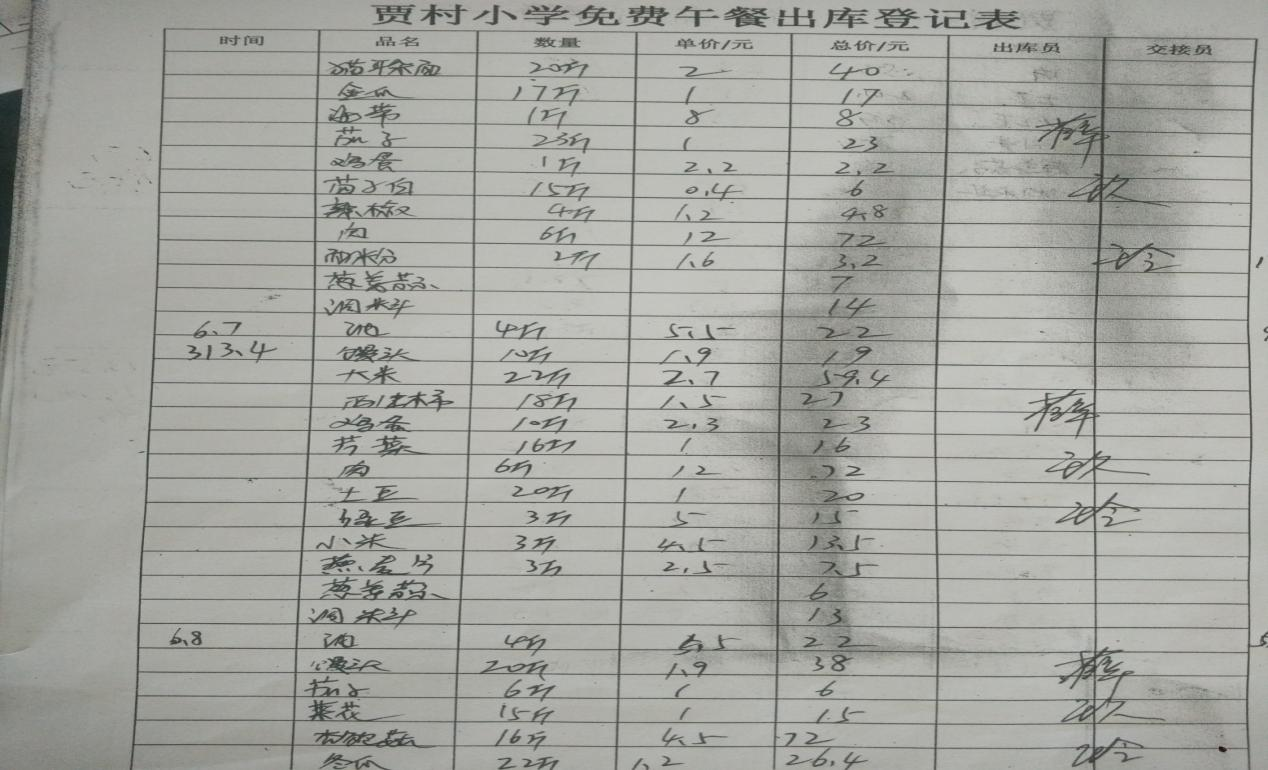 贾村小学免费午餐出库登记表
时间 品名 数量 单价/元 总价/元 出库员 交接员
猫耳朵面 20斤 2 40
金瓜 17斤 1 17
海带 1斤 8 8
茄子 23斤 1 23
鸡蛋 1斤 2.2 2.2
茴子白 15斤 0.4 6
辣椒 4斤 1.2 4.8
肉 6斤 12 72
2斤 1.6 3.2
葱姜蒜 7
调料 14
6.7 油 4斤 5.5 22
313.4 馒头 10斤 1.9 19
大米 22斤 2.7 59.4
西红柿 18斤 1.5 27
鸡蛋 10斤 2.3 23
芹菜 16斤 1 16
肉 6斤 12 72
土豆 20斤 1 20
绿豆 3斤 5 15
小米 3斤 4.5 13.5
3斤 2.5 7.5
葱姜蒜 6
调料 13
6.8 油 4斤 5.5 22
馒头 20斤 1.9 38
茄子 6斤 1 6
菜花 15斤 1 15
16斤 4.5 72
冬瓜 22斤 1.2 26.4